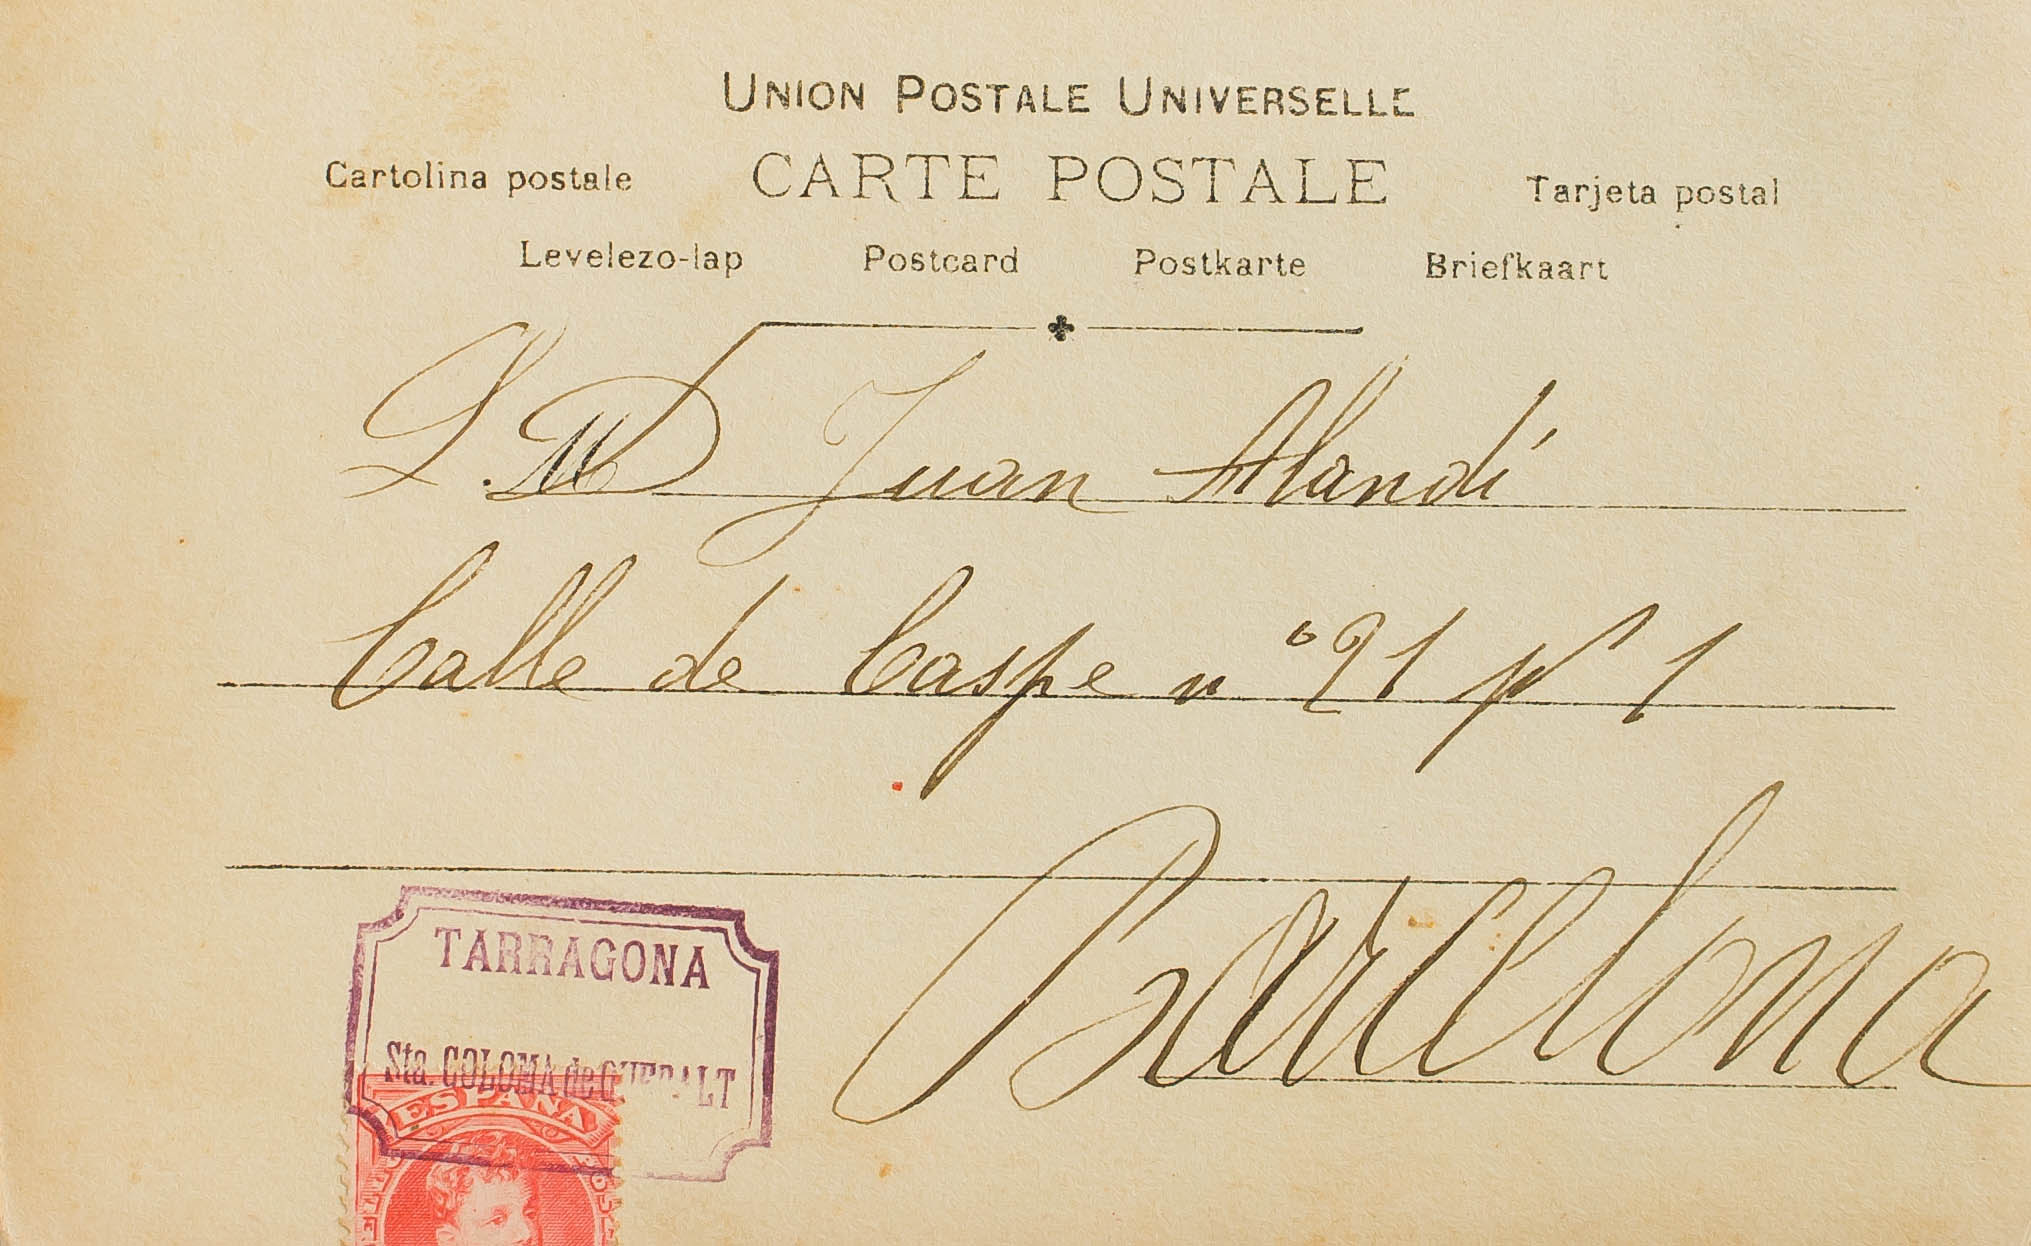 UNION POSTALE UNIVERSELLE
Cartolina postale CARTE POSTALE Tarjeta postal
Levelezo-lap Postcard Postkarte Briefkaart
Juan Alandí
Calle de Caspe nº 21 1
Barcelona
TARRAGONA
Sta. COLOMA de QUERALT
ESPAÑA